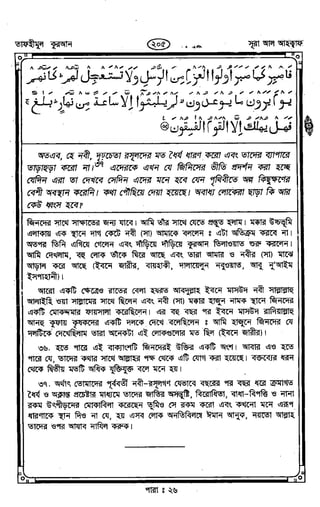 তাফহীমুল কুরআন
২০৫
সূরা আল আহক্বাফ
فَاصْبِرْ كَمَا صَبَرَ أُولُوا الْعَزْمِ مِنَ الرُّسُلِ وَلَا تَسْتَعْجِلْ لَهُمْ كَأَنَّهُمْ
يَوْمَ يَرَوْنَ مَا يُوعَدُونَ لَمْ يَلْبَثُوا إِلَّا سَاعَةً مِنْ نَهَارٍ بَلَاغٌ
فَهَلْ يُهْلَكُ إِلَّا الْقَوْمُ الْفَاسِقُونَ
অতএব, হে নবী, দৃঢ়চেতা রসূলদের মত ধৈর্য ধারণ করো এবং তাদের ব্যাপারে
তাড়াহুড়া করো না। এদেরকে এখন যে জিনিসের ভীতি প্রদর্শন করা হচ্ছে
যেদিন এরা তা দেখবে সেদিন এদের মনে হবে যেন পৃথিবীতে অল্প কিছুক্ষণের
বেশী অবস্থান করেনি। কথা পৌঁছিয়ে দেয়া হয়েছে। অবাধ্য লোকেরা ছাড়া কি আর
কেউ ধ্বংস হবে?
জিনদের সাথে সাক্ষাতের জন্য যাবে। আমি তাঁর সাথে যেতে প্রস্তুত হলাম। মক্কার উচ্চভূমি
এলাকায় এক স্থানে দাগ কেটে নবী (সা) আমাকে বললেন : এটা অতিক্রম করবে না।
অতপর তিনি এগিয়ে গেলেন এবং দাঁড়িয়ে দাঁড়িয়ে কুরআন তিলাওয়াত শুরু করলেন।
আমি দেখলাম, বহু লোক তাঁকে ঘিরে আছে এবং তারা আমার ও নবীর (সা) মাঝে
আড়াল করে আছে (ইবনে জারীর, বায়হাকী, দালায়েলুন নবুওয়াত, আবু নু'আইম
ইসপাহানী)।
আরো একটি ক্ষেত্রেও রাতের বেলা হযরত আবদুল্লাহ ইবনে মাসউদ নবী সাল্লাল্লাহু
আলাইহি ওয়া সাল্লামের সাথে ছিলেন এবং নবী (সা) মক্কার হাজুন নামক স্থানে জিনদের
একটি মোকদ্দমার ফায়সালা করেছিলেন। এর বহু বছর পর ইবনে মাসউদ রাদিয়াল্লাহু
আনহু কুফায় কৃষকদের একটি দলকে দেখে বলেছিলেন : আমি হাজুনে জিনদের যে
দলটিকে দেখেছিলাম তারা অনেকটা এই লোকগুলোর মত ছিল (ইবনে জারীর)।
৩৬. হতে পারে এই বাক্যাংশটি জিনদেরই উক্তির একটি অংশ। আবার এও হতে
পারে যে, তাদের কথার সাথে আল্লাহর পক্ষ থেকে এটি যোগ করা হয়েছে। বক্তব্যের ধরন
থেকে দ্বিতীয় মতটি অধিক যুক্তিযুক্ত বলে মনে হয়।
৩৭. অর্থাৎ তোমাদের পূর্ববর্তী নবী-রসূলগণ যেভাবে বছরের পর বছর ধরে ক্রমাগত
ধৈর্য ও অক্লান্ত প্রচেষ্টার মাধ্যমে তাদের জাতির অসন্তুষ্টি, বিরোধিতা, বাধা-বিপত্তি ও নানা
রকম উৎপীড়নের মোকাবিলা করেছেন তুমিও সে রকম করো এবং কখনো মনে এরূপ
ধারণাকে স্থান দিও না যে, হয় এসব লোক অনতিবিলম্বে ঈমান আনুক, নয়তো আল্লাহ
তাদের ওপর আযাব নাযিল করুক।
পারা : ২৬